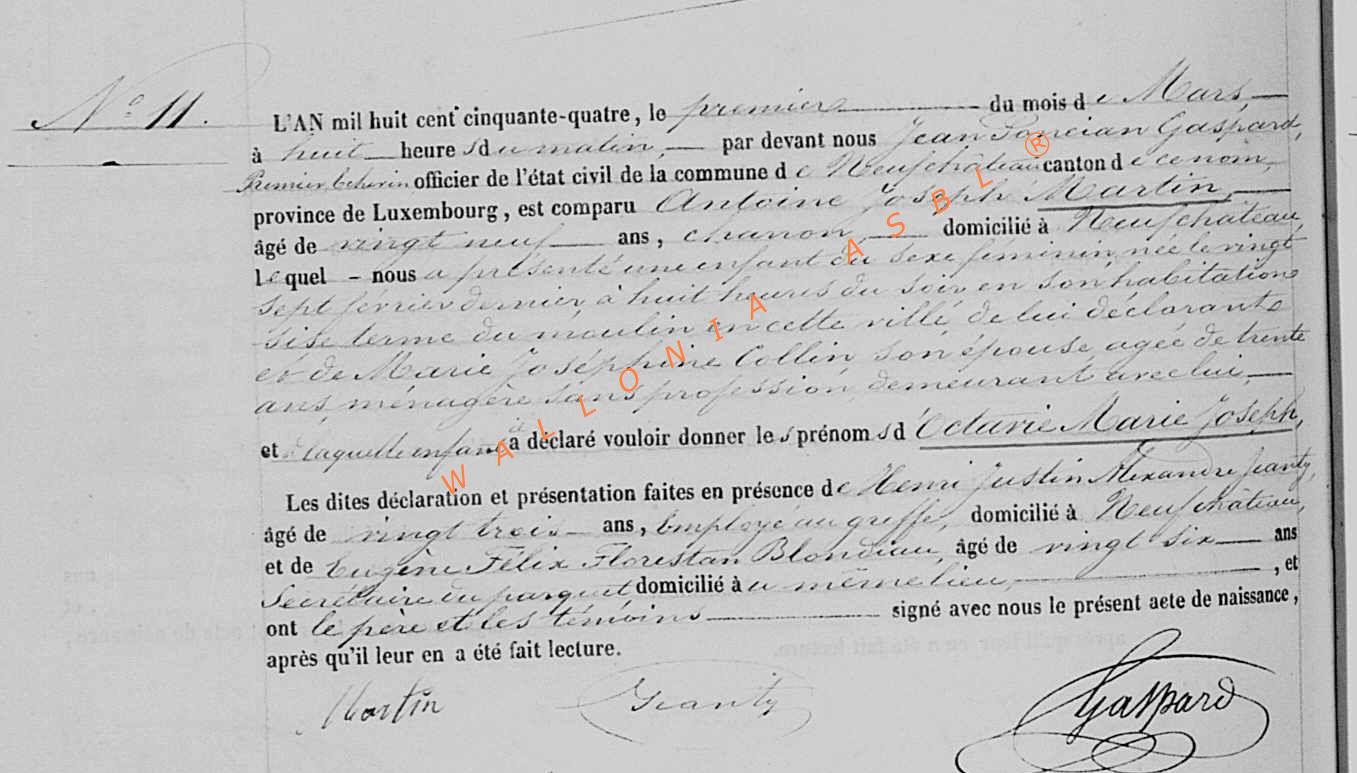 N° 11.
L'AN mil huit cent cinquante-quatre, le premier du mois de Mars,
à huit heures du matin, par devant nous Jean Gaspard,
Premier Echevin officier de l'état civil de la commune de Neufchâteau canton de ce nom,
province de Luxembourg, est comparu Antoine Joseph Martin,
âgé de vingt neuf ans, domicilié à Neufchâteau,
lequel - nous a présenté une enfant du sexe féminin, née le vingt
sept février dernier, à huit heures du soir en son habitation
sise terme du moulin en cette ville, de lui déclarant
et de Marie Joséphine Collin son épouse agée de trente
ans, ménagère sans profession, demeurant avec lui,
et à laquelle enfant il a déclaré vouloir donner les prénoms d'Octavie Marie Joseph,
Les dites déclaration et présentation faites en présence de Henri Justin Alexandre Jeanty,
âgé de vingt trois ans, Employé au greffe, domicilié à Neufchâteau,
et de Eugène Félix Florestan Blondiau, âgé de vingt six ans
Secrétaire du parquet domicilié au même lieu, , et
ont le père et les témoins signé avec nous le présent acte de naissance,
après qu'il leur en a été fait lecture.
Martin Jeanty Gaspard
WALLONIA ASBL ®